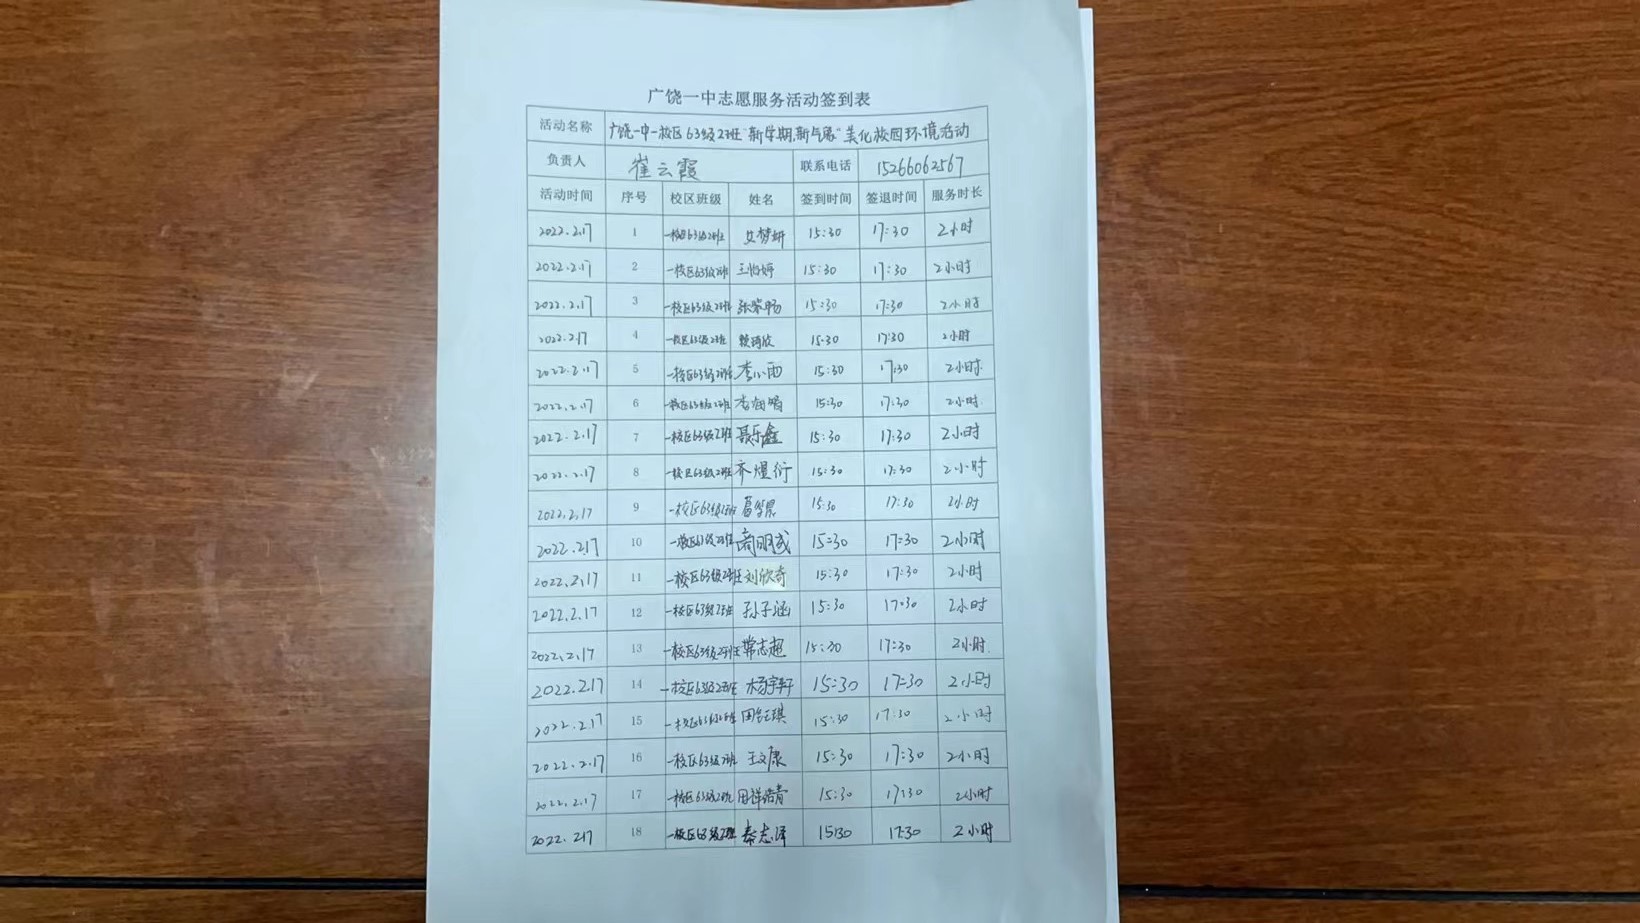 广饶一中志愿服务活动签到表
活动名称 广饶一中一校区63级2班"新学期,新气象"美化校园环境活动
负责人 崔云霞 联系电话 15266062567
活动时间 序号 校区班级 姓名 签到时间 签退时间 服务时长
2022.2.17 1 一校区63级2班 15:30 17:30 2小时
2022.2.17 2 一校区63级2班 王怡婷 15:30 17:30 2小时
2022.2.17 3 一校区63级2班 15:30 17:30 2小时
2022.2.17 4 一校区63级2班 15:30 17:30 2小时
2022.2.17 5 一校区63级2班 李小雨 15:30 17:30 2小时
2022.2.17 6 一校区63级2班 15:30 17:30 2小时
2022.2.17 7 一校区63级2班 聂乐鑫 15:30 17:30 2小时
2022.2.17 8 一校区63级2班 齐煜衍 15:30 17:30 2小时
2022.2.17 9 一校区63级2班 15:30 17:30 2小时
2022.2.17 10 一校区63级2班 15:30 17:30 2小时
2022.2.17 11 一校区63级2班 刘欣奇 15:30 17:30 2小时
2022.2.17 12 一校区63级2班 孙子涵 15:30 17:30 2小时
2022.2.17 13 一校区63级2班 常志超 15:30 17:30 2小时
2022.2.17 14 一校区63级2班 杨宇轩 15:30 17:30 2小时
2022.2.17 15 一校区63级2班 15:30 17:30 2小时
2022.2.17 16 一校区63级2班 王文康 15:30 17:30 2小时
2022.2.17 17 一校区63级2班 15:30 17:30 2小时
2022.2.17 18 一校区63级2班 秦志泽 15:30 17:30 2小时